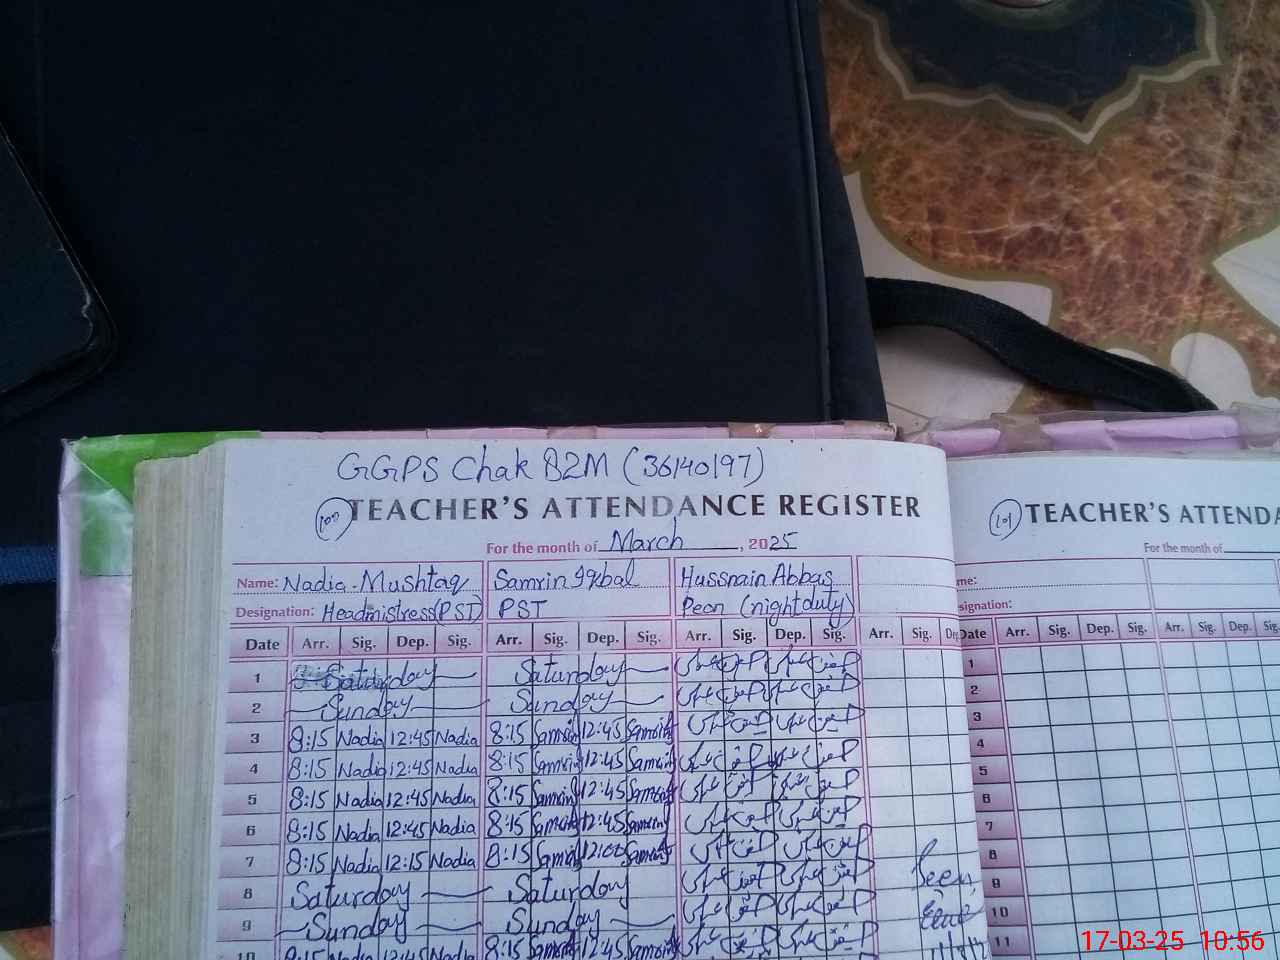 GGPS Chak 82M (36140197)
100 TEACHER'S ATTENDANCE REGISTER
For the month of March, 2025
Name: Nadia Mushtaq Samrin Iqbal Hussnain Abbas
Designation: Headmistress (PST) PST Peon (night duty)
Date Arr. Sig. Dep. Sig. Arr. Sig. Dep. Sig. Arr. Sig. Dep. Sig. Arr. Sig. Dep
1 Saturday Saturday
2 Sunday Sunday
3 8:15 Nadia 12:45 Nadia 8:15 Samrin 12:45 Samrin
4 8:15 Nadia 12:45 Nadia 8:15 Samrin 12:45 Samrin
5 8:15 Nadia 12:45 Nadia 8:15 Samrin 12:45 Samrin
6 8:15 Nadia 12:45 Nadia 8:15 Samrin 12:45 Samrin
7 8:15 Nadia 12:15 Nadia 8:15 Samrin 12:00 Samrin
8 Saturday Saturday Seen
9 Sunday Sunday
10 8:15 Nadia 12:45 Nadia 8:15 Samrin 12:45 Samrin
101 TEACHER'S ATTENDA
For the month of
me:
signation:
Date Arr. Sig. Dep. Sig. Arr. Sig. Dep. Sig.
1
2
3
4
5
6
7
8
9
10
11
17-03-25 10:56